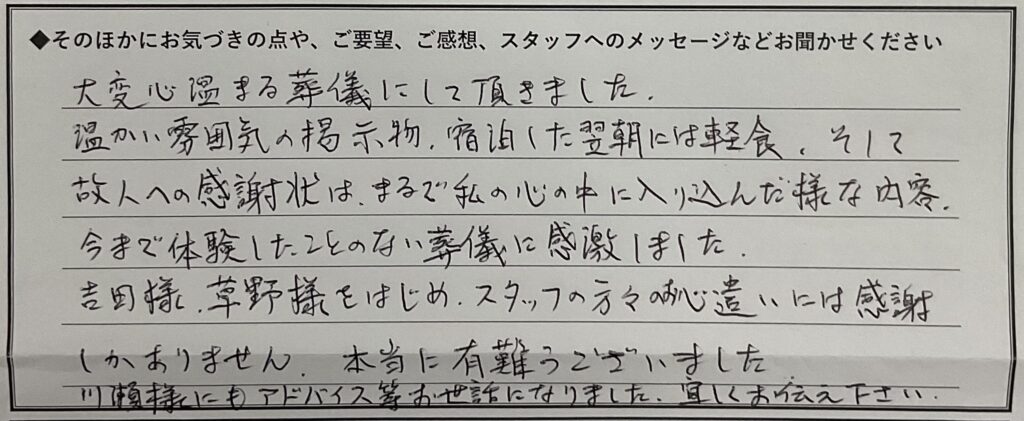 ◆そのほかにお気づきの点や、ご要望、ご感想、スタッフへのメッセージなどお聞かせください
大変心温まる葬儀にして頂きました.
温かい雰囲気の掲示物、宿泊した翌朝には軽食、そして
故人への感謝状は、まるで私の心の中に入り込んだ様な内容.
今まで体験したことのない葬儀に感激しました.
吉田様、草野様をはじめ、スタッフの方々のお心遣いには感謝
しかありません. 本当に有難うございました
川瀬様にもアドバイス等お世話になりました. 宜しくお伝え下さい.